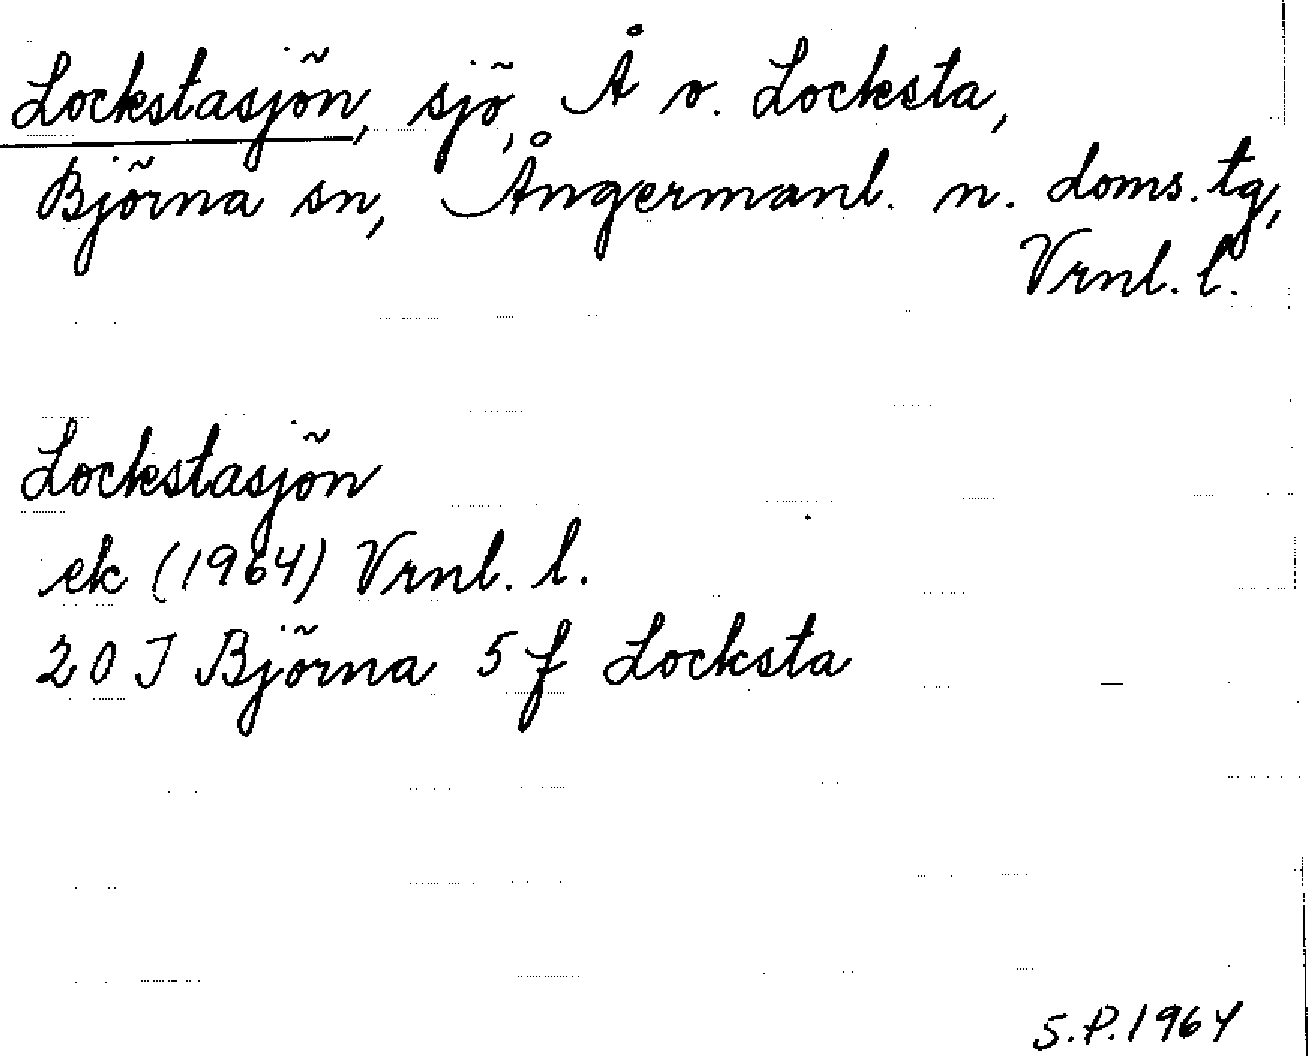 Lockstasjön, sjö, Å v. Locksta,
Björna sn, Ångermanl. n. doms. tg,
Vrnl. l.
Lockstasjön
ek (1964) Vrnl. l.
20 J Björna 5 f Locksta
S.P. 1964